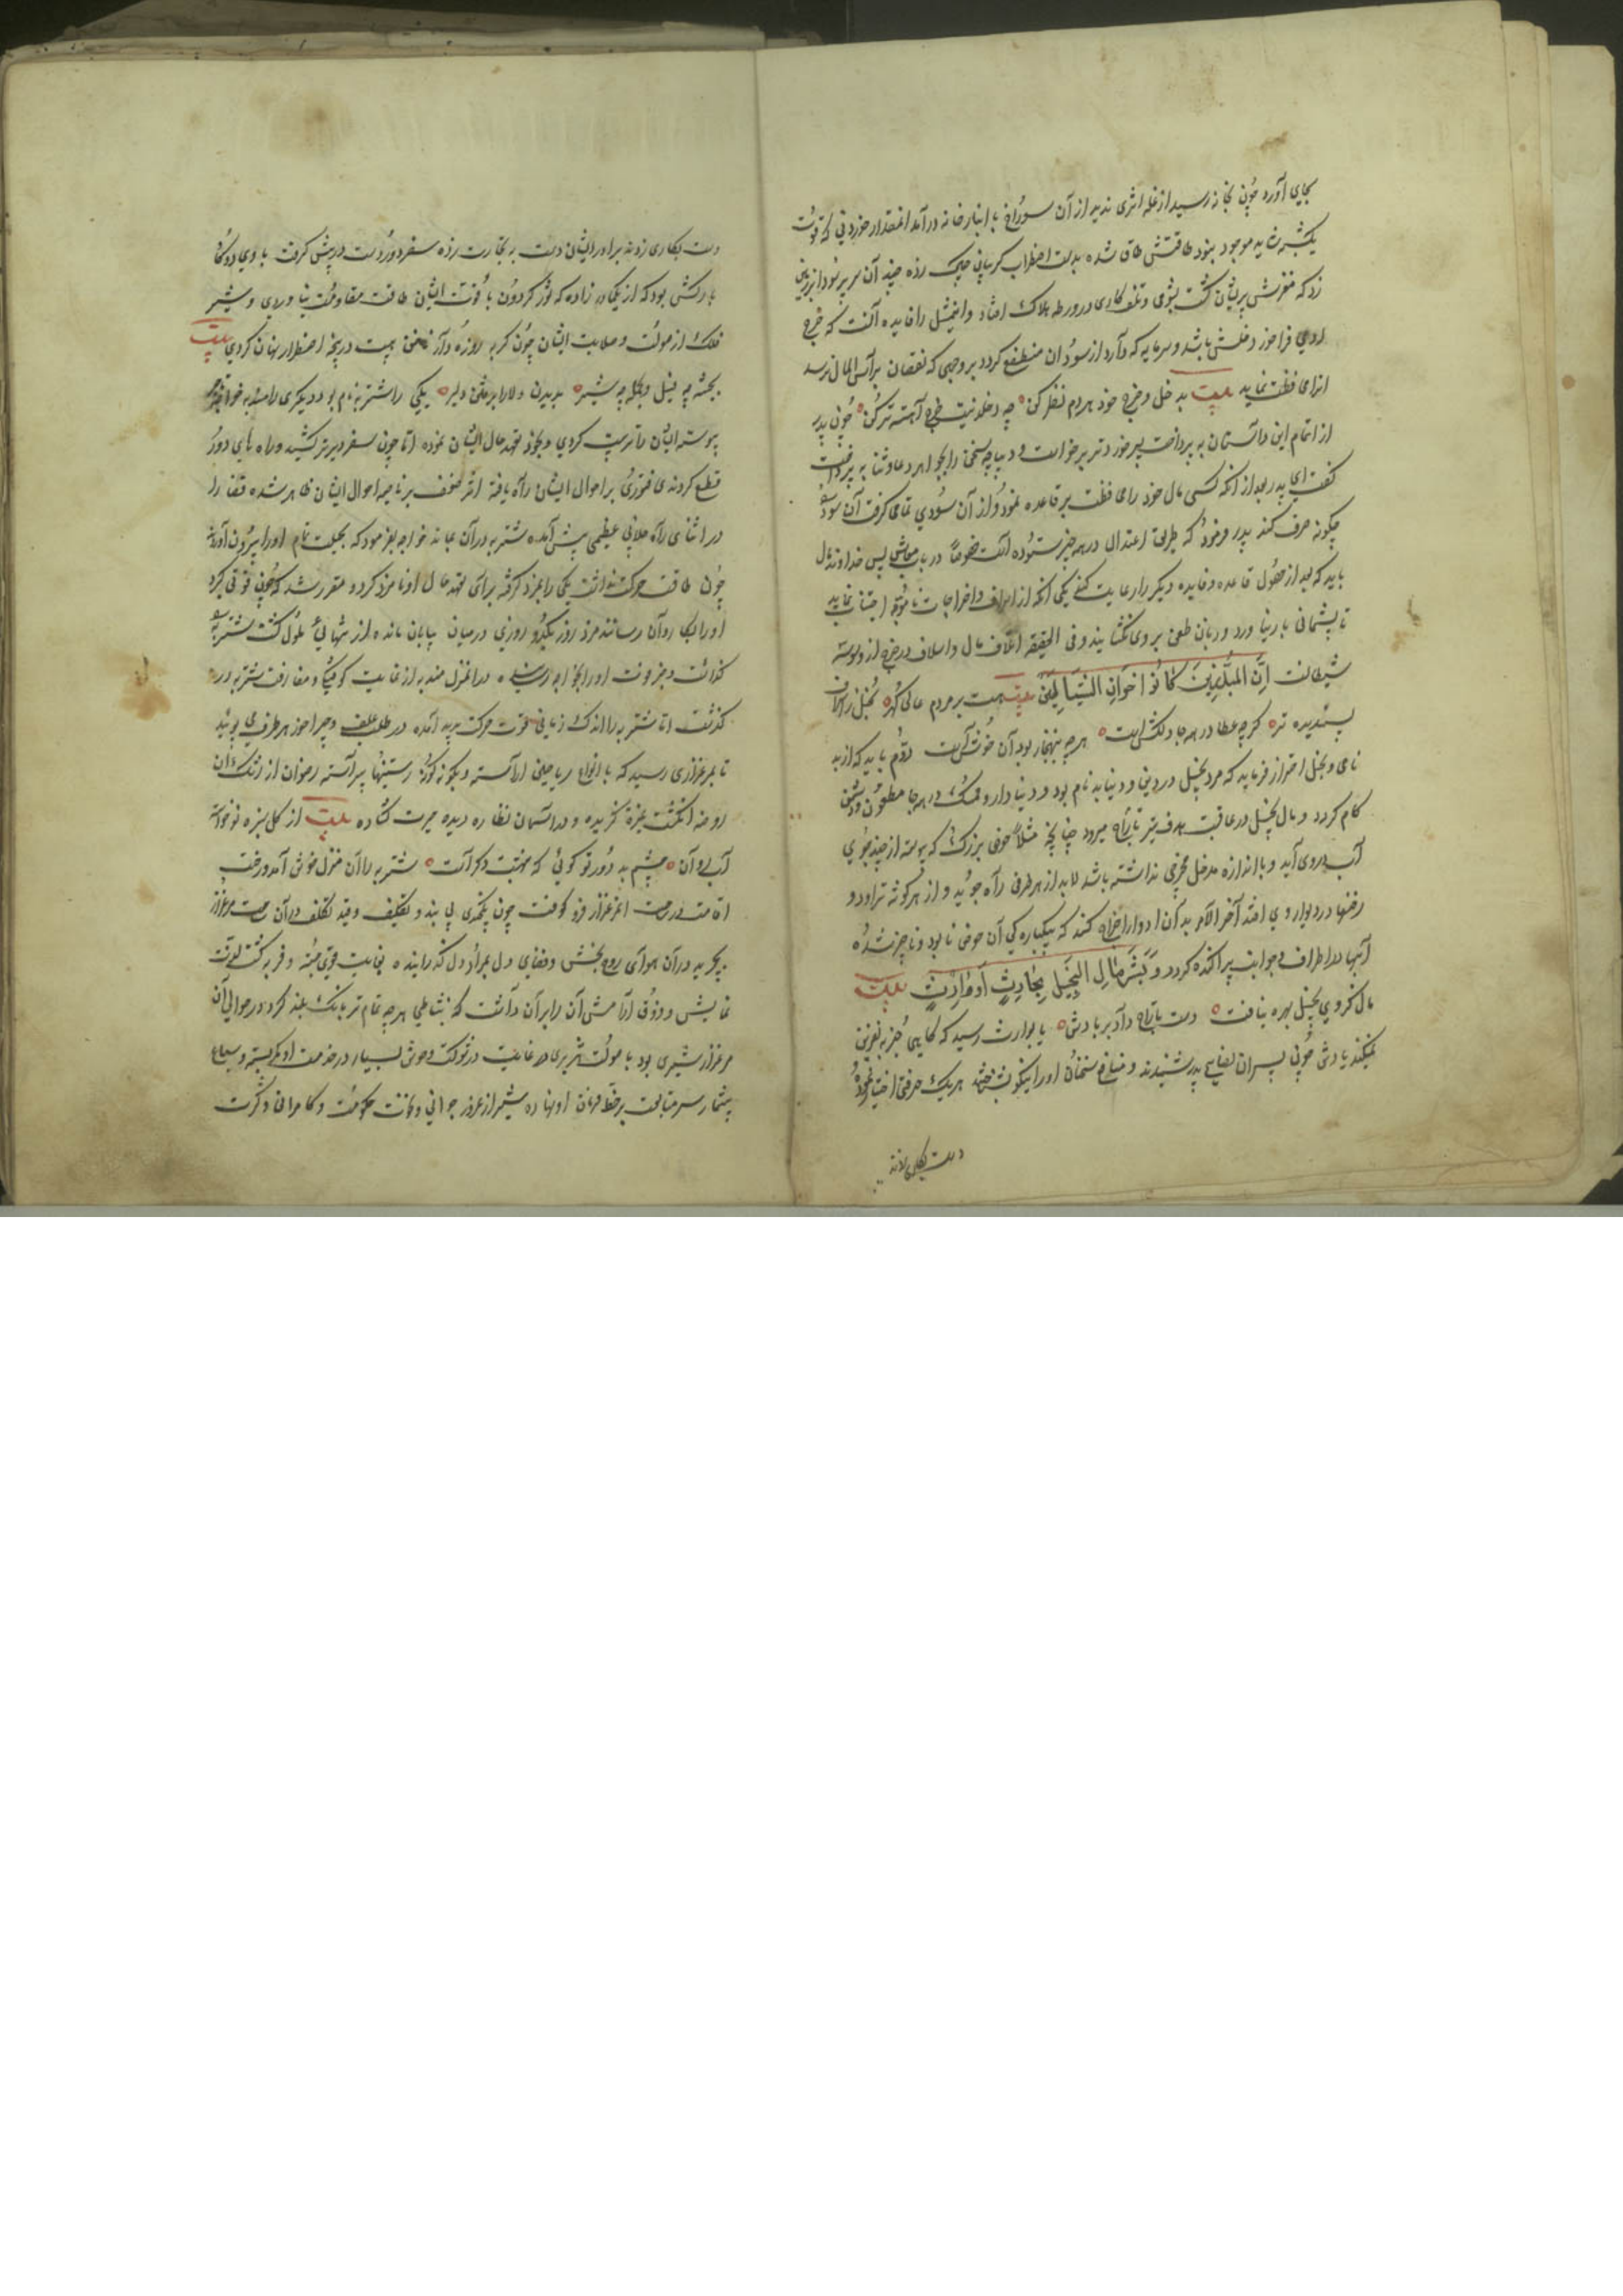 بجای آورد چون بخانه رسید از غله اثری ندید از آن سوراخ بانبارخانه درآمد آنمقدار خوردنی که قوت
یکشبه شاید موجود نبود طاقتش طاق شده بدست اضطراب گریبان چاک زده چندان سر پر سودا بر زمین
زد که مغزش پریشان گشت بشومی و تلف کاری در ورطه هلاک افتاد و این مثل را فایده آنست که خرج
آدمی فراخور دخلش باشد و سرمایه که دارد از سود آن منتفع گردد بر وجهی که نقصان برأس المال نرسد
آنرا محافظت نماید بیت بدخل و خرج خود هر دم نظر کن چه دخلت نیست خرج آهسته تر کن چون پدر
از اتمام این داستان به پرداخت پسر خوردتر برخواست و دیباچه سخن را بجواهر دعا و ثنا
گفت ای پدر بعد از آنکه کسی مال خود را محافظت بر قاعده نمود و از آن سودی تمام گرفت آن سود را
چگونه صرف کند پدر فرمود که طریق اعتدال در همه چیز ستوده است خصوصاً در باب معاش پس خداوند مال
باید که بعد از حصول قاعده و فایده دیگر را رعایت کند یکی آنکه از اسراف و اخراجات ناموجه اجتناب نماید
تا پشمانی بار نیاورد و زبان طعن بر وی نگشایند و فی الحقیقه اتلاف مال و اسلاف در خرج از وسوسه
شیطانست اِنَّ المُبَذِّرِینَ کَانُوا اخوَانِ الشَّیَاطِینَ بیت هست بر مردم عالی گهر بخل ز اسراف
پسندیده تر گرچه عطا در همه جا دلکش است هرچه بهنجار بود آن خوش است دوم باید که از بد
نامی و بخل احتراز فرماید که مرد بخیل در دین و دنیا بدنام بود و دنیادار و ممسک در همه جا مطعون و دشمن
کام گردد و مال بخیل در عاقبت هدف تیر تاراج میرود چنانچه مثلاً حوض بزرگ که پیوسته از چند جوی
آب در وی آید و باندازه مدخل مخرجی نداشته باشد لابد از هر طرف راه جوید و از هر گوشه تراود و
رخنها در دیوار وی افتد آخر الامر بدان کند که بیکباره گی آن حوض نابود و ناچیز شده
آبها در اطراف و جوانب پراکنده گردد وَ بَشِّر مَالِ البَخِیلِ بِحَادِثٍ اَو وَارِثٍ بیت
مال کز وی بخیل بهره نیافت دست تاراج داد بر بادش یا بوارث رسید که گاهی جز به نفرین
نمیکند یادش چون پسران نصایح پدر شنیدند و منافع سخنان او را نیکو بشناختند هریک حرفتی اختیار نموده
دست بکاری زدند
دست بکاری زدند برادر ایشان دست به تجارت زده سفر دور دست در پیش گرفت با وی دو گاو
بارکش بود که از یکی در زاده که ثور گردون با قوت ایشان طاقت مقاومت نیاوردی و شیر
فلک از صولت و صلابت ایشان چون گربه روزه دار ناخن هیبت در پنجه اضطرار نهان کردی بیت
بجثه چه فیل و بحمله چه شیر بدیدن دلارا برفتن دلیر یکی را شتربه نام بود و دیگری را مندبه خواجه
پیوسته ایشان را تربیت کردی و بخود تعهد حال ایشان نموده اما چون سفر دیرتر کشید و راه های دور
قطع کردند فتوری بر احوال ایشان راه یافته اثر ضعف بر ناصیه احوال ایشان ظاهر شده قضا را
در اثنای راه خلابی عظیم پیش آمده شتربه در آن بماند خواجه بفرمود که بحیلت تمام او را بیرون آوردند
چون طاقت حرکت نداشت یکی را بمزد گرفته برای تعهد حال او نامزد کرد و مقرر شد که چون قوتی گیرد
او را بکاروان رساند مزدور یکدو روزی در میان بیابان مانده از تنهائی ملول گشت شتربه را
گذاشت و خبر فوت او را بخواجه رسانیده در آن منزل مندبه از غایت کوفتگی و مفارقت شتربه در
گذشت اما شتربه را اندک زمانی قوت حرکت پدید آمده در طلب علف و چراخور هر طرف می پوئید
تا بمرغزاری رسید که بانواع ریاحین آراسته و بگونه گونه رستنیها پیراسته رضوان از رشک آن
روضه انگشت غیرت گزیده و در آسمان نظاره دیده حیرت گشاده بیت از گل سبزه نوخواسته
آب روان چشم بد دور تو گوئی که بهشت دگر است شتربه را آن منزل خوش آمد و رخت
اقامت در ساحت آن مرغزار فرو گوفت چون یکچندی بی بند و تکلیف و قید تکلف در آن ساحت مرغزار
بچرید در آن هوای روح بخش و فضای دل بمراد دل گذرانیده بغایت قوی جثه و فربه گشت لذت
نمایش و ذوق آرامش آن را بر آن داشت که بنشاطی هرچه تمام تر بانک بلند کرد و در حوالی آن
مرغزار شیری بود با صولت هژبری در غایت شوکت وحوش بسیار در خدمت او کمر بسته و سباع
بیشمار سر متابعت بر خط فرمان او نهاده شیر از غرور جوانی و نخوت حکومت و کامرانی و کثرت